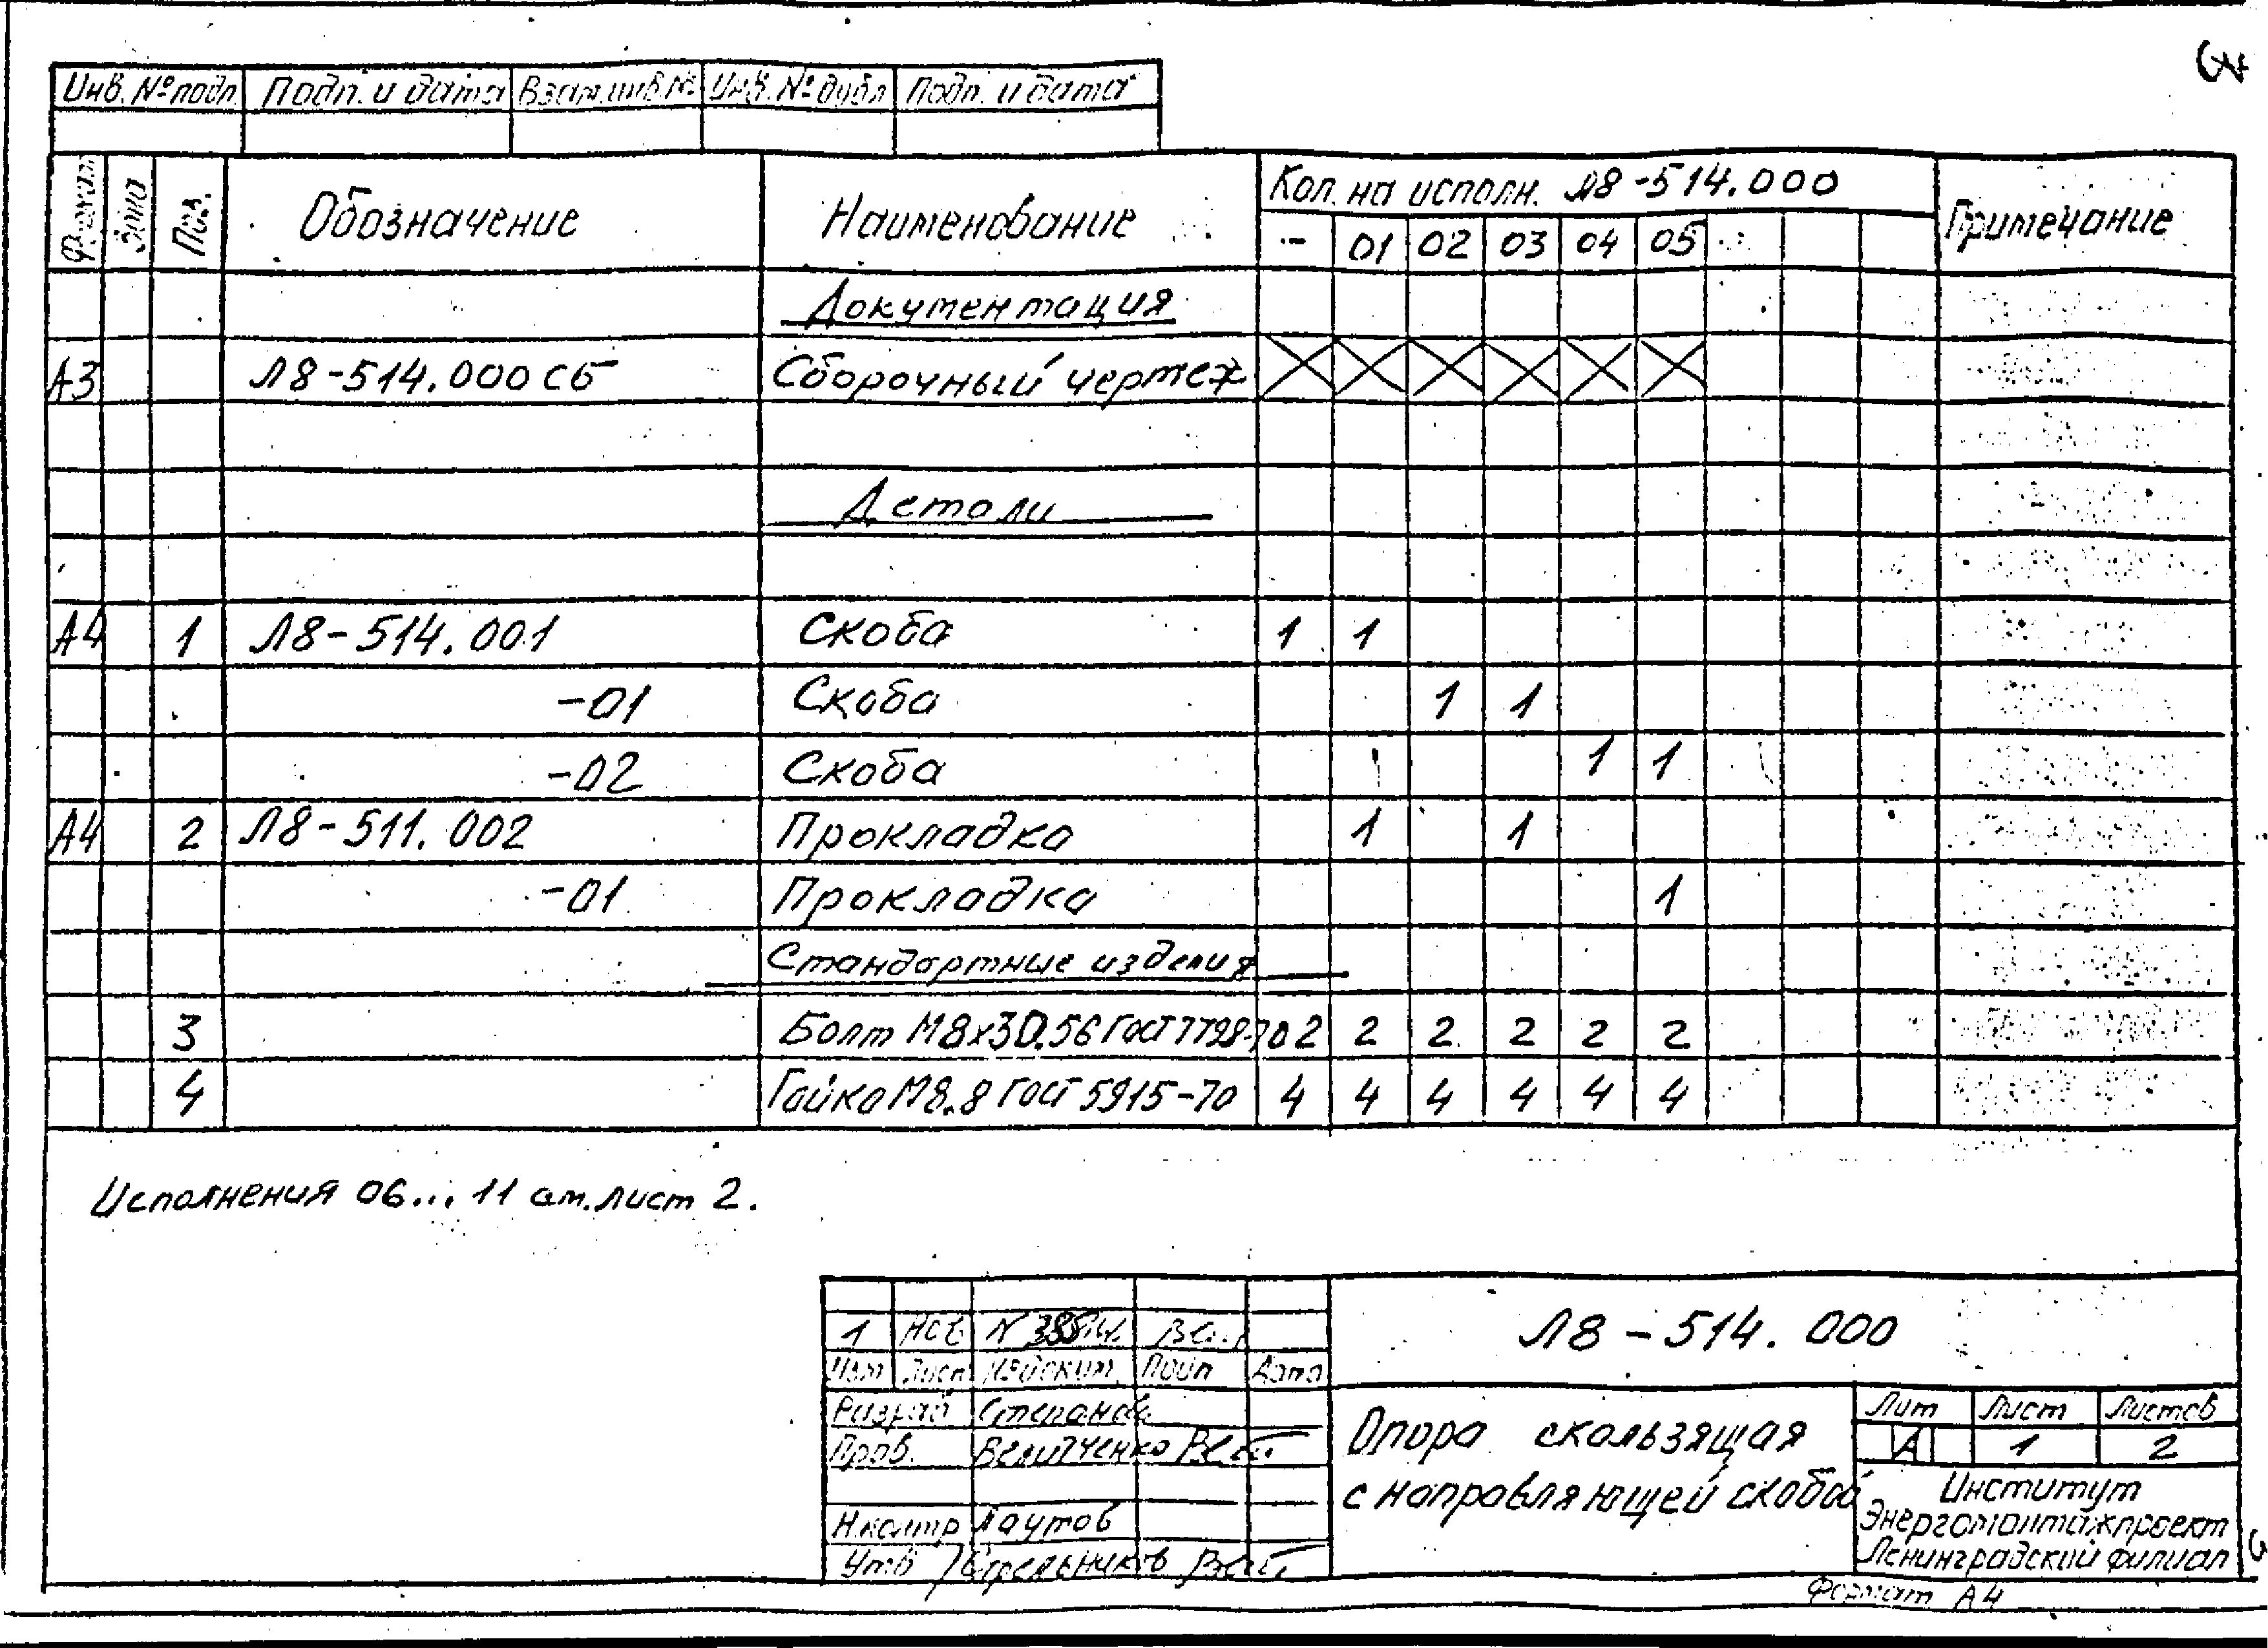 3
Инв. № подл. Подп. и дата Взам. инв. № Инв. № дубл Подп. и дата
Формат Зона Поз. Обозначение Наименование Кол. на исполн. Л8-514.000 Примечание
- 01 02 03 04 05
Документация
А3 Л8-514.000 СБ Сборочный чертеж
Детали
А4 1 Л8-514.001 Скоба 1 1
-01 Скоба 1 1
-02 Скоба 1 1
А4 2 Л8-511.002 Прокладка 1 1
-01 Прокладка 1
Стандартные изделия
3 Болт М8х30.56 ГОСТ 7798-70 2 2 2 2 2 2
4 Гайка М8.8 ГОСТ 5915-70 4 4 4 4 4 4
Исполнения 06... 11 см. лист 2.
1 Нов
Изм Лист № докум. Подп Дата
Л8-514.000
Разраб Степанов
Пров.
Н.контр Лаутов
Утв Стрельников
Опора скользящая
с направляющей скобой
Лит Лист Листов
А 1 2
Институт
Энергомонтажпроект
Ленинградский филиал
Формат А4